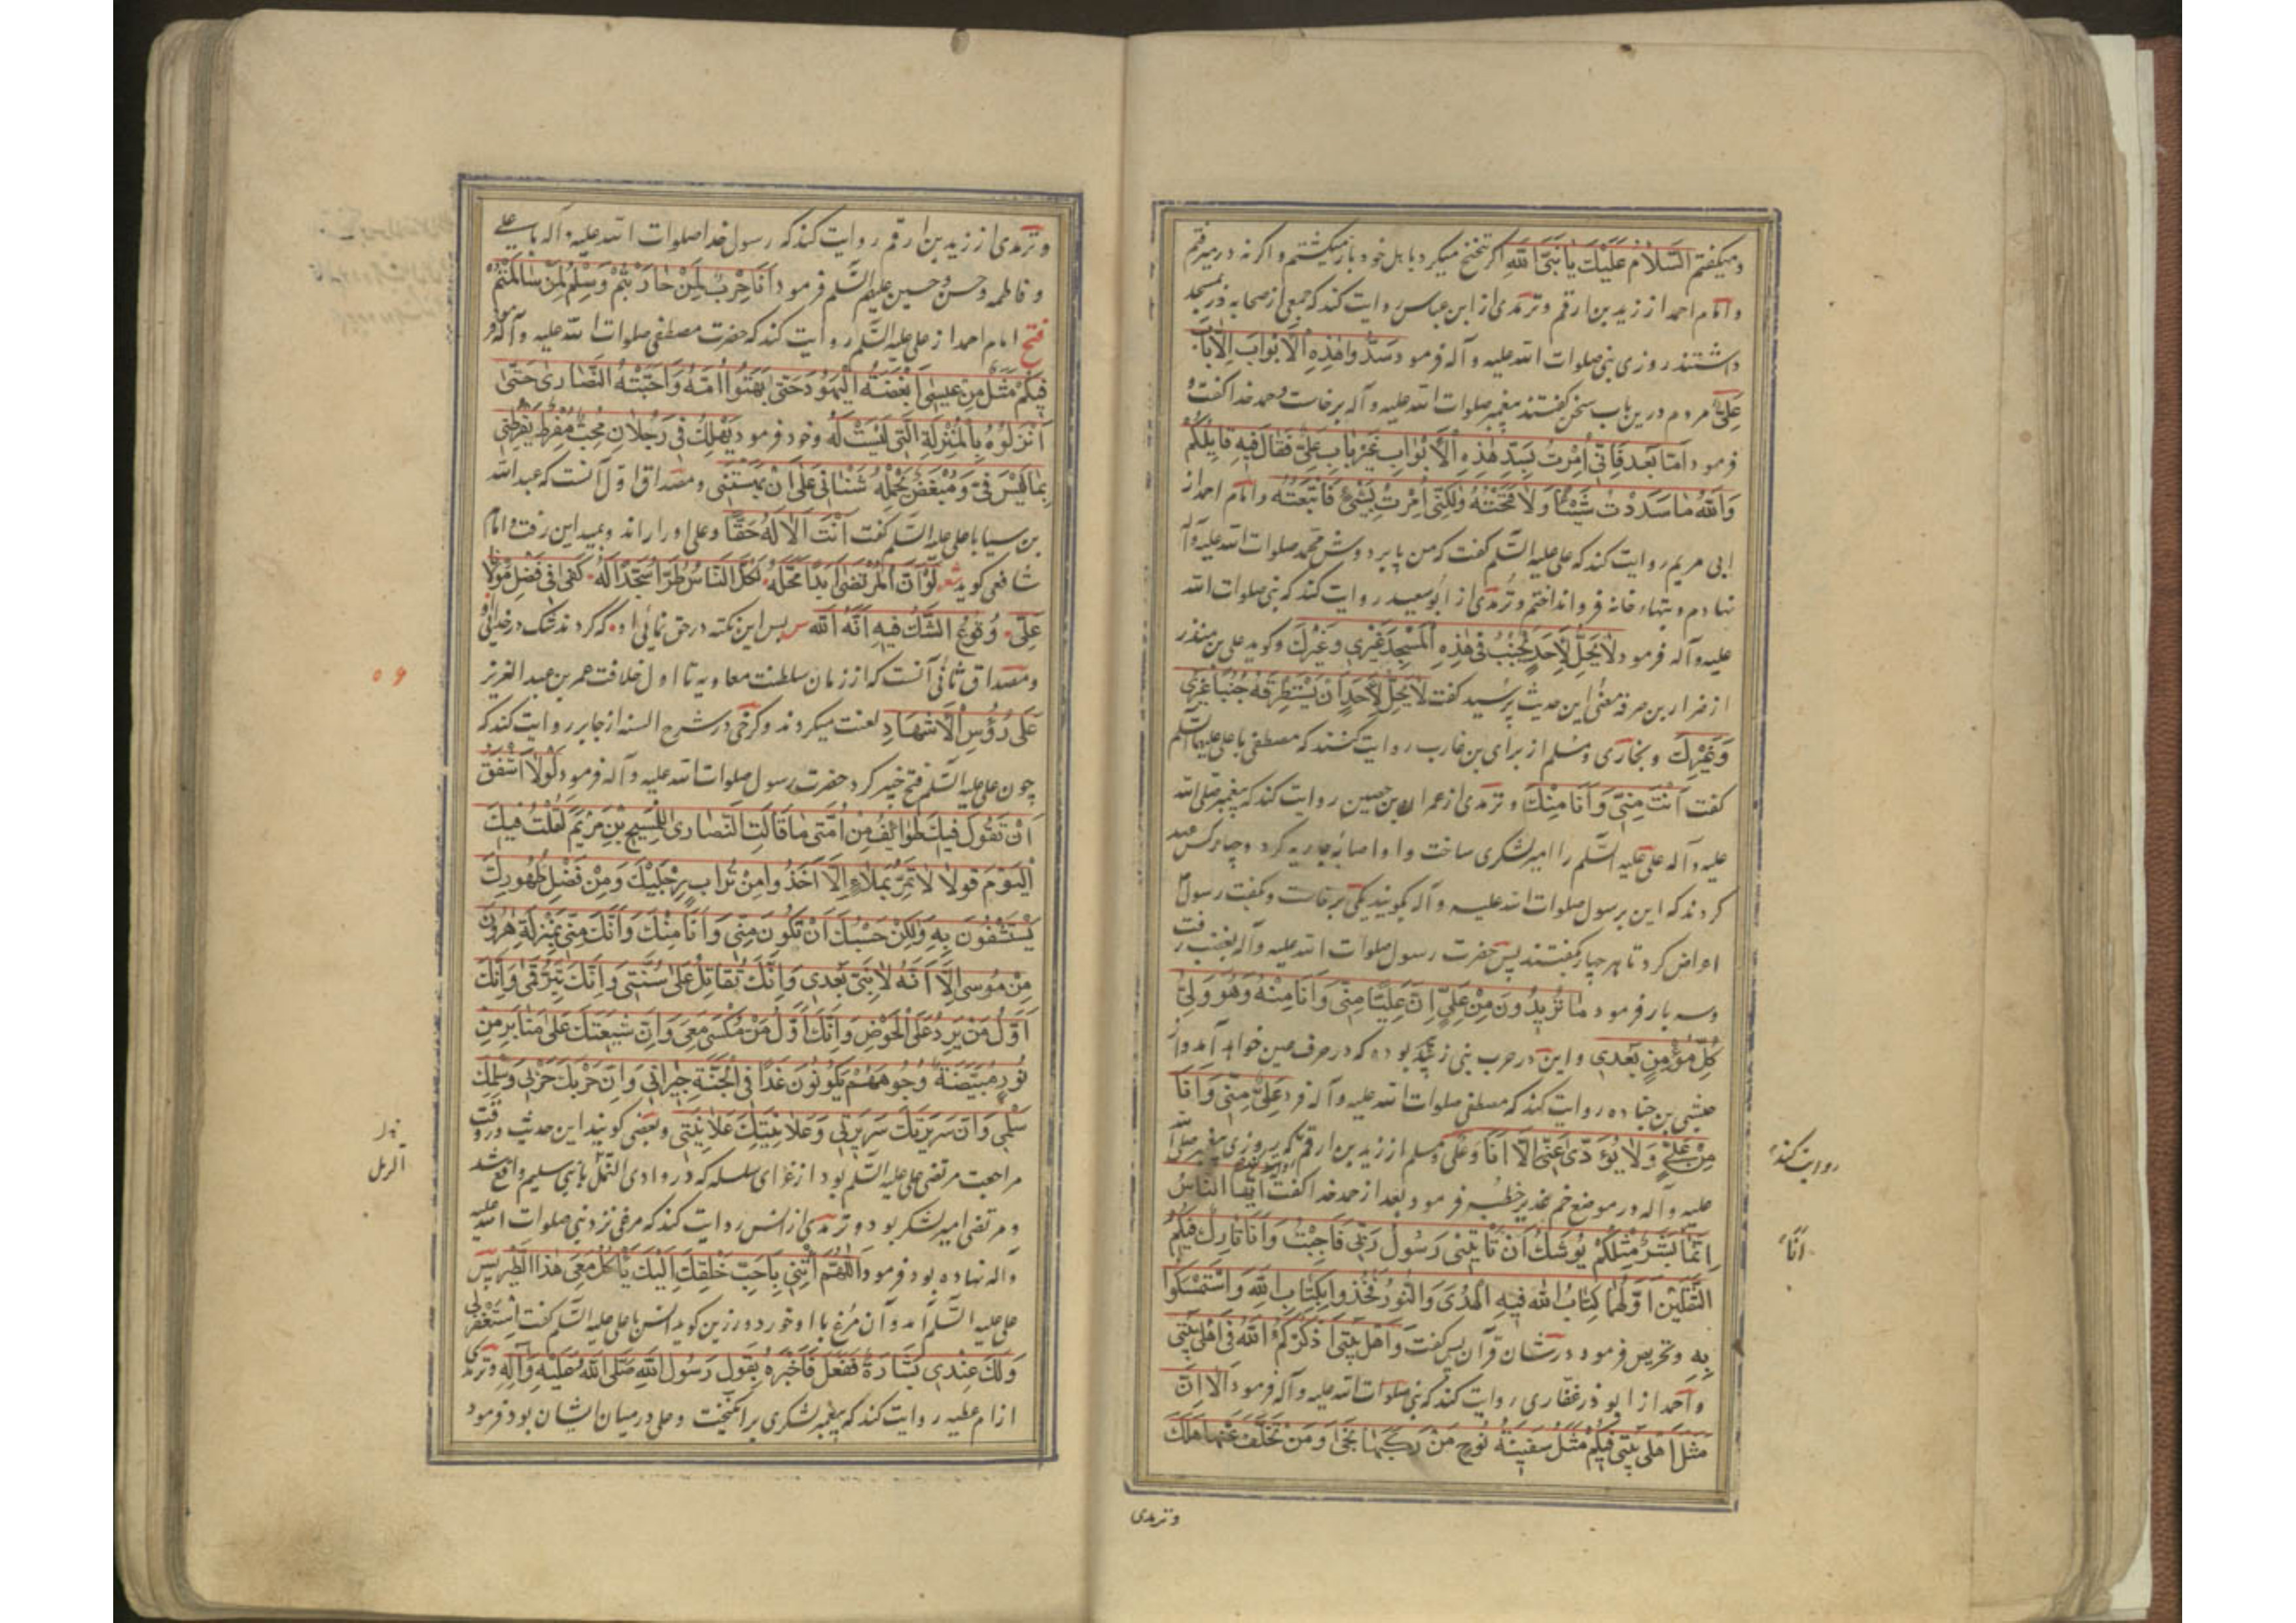 ومیکفتم السَّلامُ عَلَیْكَ یَا نَبِیَّ اللهِ اکر تنحنح میکرد باهل خود باز میکشتم و اکر نه در میرفتم
و امام احمد از زید بن ارقم و ترمذی از ابن عباس روایت کند که جمعی از صحابه در مسجد
داشتند روزی نبی صلوات الله علیه و آله فرمود سَدُّوا هٰذِهِ الْاَبْوَابَ اِلَّا بَابَ
عَلِیٍّ مردم درین باب سخن کفتند پیغمبر صلوات الله علیه و آله برخاست و حمد خدا کفت و
فرمود اَمَّا بَعْدُ فَاِنّی اُمِرْتُ بِسَدِّ هٰذِهِ الْاَبْوَابِ غَیْرَ بَابِ عَلِیٍّ فَقَالَ فِیهِ قَایِلُکُمْ
وَاللهِ مَا سَدَدْتُ شَیْئًا وَلَا فَتَحْتُهُ وَلٰکِنّی اُمِرْتُ بِشَیْءٍ فَاتَّبَعْتُهُ و امام احمد از
ابی مریم روایت کند که علی علیه السّلم کفت که من پا بر دوش محمد صلوات الله علیه و آله
نهادم و بتهاء خانه فرو انداختم و ترمذی از ابو سعید روایت کند که نبی صلوات الله
علیه و آله فرمود لَا یَحِلُّ لِاَحَدٍ یُجْنِبُ فی هٰذِهِ الْمَسْجِدِ غَیْری وَغَیْرَكَ و کوید علی بن منذر
از ضرار بن صرد معنی این حدیث پرسید کفت لَا یَحِلُّ لِاَحَدٍ اَنْ یَسْتَطْرِقَهُ جُنُبًا غَیْری
وَغَیْرَكَ و بخاری و مسلم از برای بن عازب روایت کنند که مصطفی با علی علیهما السّلم
کفت اَنْتَ مِنّی وَاَنَا مِنْكَ و ترمذی از عمران بن حصین روایت کند که پیغمبر صلی الله
علیه و آله علی علیه السّلم را امیر لشکری ساخت و او اصابهٔ جاریه کرد و چهار کس عهد
کردند که این بر رسول صلوات الله علیه و آله بکویند یکی برخاست و بکفت رسول
اعراض کرد تا هر چهار بکفتند پس حضرت رسول صلوات الله علیه و آله بغضب رفت
و سه بار فرمود مَا تُرِیدُونَ مِنْ عَلِیٍّ اِنَّ عَلِیًّا مِنّی وَاَنَا مِنْهُ وَهُوَ وَلِیُّ
کُلِّ مُؤْمِنٍ بَعْدی و این در حرب بنی زبید بوده که در حرف عین خواهد آمد و از
حبشی بن جناده روایت کند که مصطفی صلوات الله علیه و آله فرمود عَلِیٌّ مِنّی وَاَنَا
مِنْ عَلِیٍّ وَلَا یُؤَدّی عَنّی اِلَّا اَنَا وَعَلِی و مسلم از زید بن ارقم که روزی پیغمبر صلوات الله
علیه و آله در موضع خم غدیر خطبه فرمود بعد از حمد خدا کفت اَیُّهَا النَّاسُ
اِنَّمَا بَشَرٌ مِثْلُکُمْ یُوشَكُ اَنْ تَأْتِیَنی رَسُولُ رَبّی فَاُجِیْبُ وَاَنَا تَارِكٌ فِیکُمُ
الثَّقَلَیْنِ اَوَّلُهُمَا کِتَابُ اللهِ فِیهِ الْهُدَی وَالنُّورُ فَخُذُوا بِکِتَابِ اللهِ وَاسْتَمْسِکُوا
بِهِ و تحریص فرمود در شان قرآن پس کفت وَاَهْلُ بَیْتی اُذَکِّرُکُمُ اللهَ فی اَهْلِ بَیْتی
و احمد از ابو ذر غفاری روایت کند که نبی صلوات الله علیه و آله فرمود اَلَا اِنَّ
مَثَلَ اَهْلِ بَیْتی فِیکُمْ مَثَلُ سَفِینَةِ نُوحٍ مَنْ رَکِبَهَا نَجٰی وَمَنْ تَخَلَّفَ عَنْهَا هَلَكَ
روایت کند
اَنَا
و ترمذی
و ترمذی از زید بن ارقم روایت کند که رسول خدا صلوات الله علیه و آله با علی
و فاطمه و حسن و حسین علیهم السّلم فرمود اَنَا حَرْبٌ لِمَنْ حَارَبْتُمْ وَسِلْمٌ لِمَنْ سَالَمْتُمْ
فتح امام احمد از علی علیه السّلم روایت کند که حضرت مصطفی صلوات الله علیه و آله فرمود
فِیکُمْ مَثَلٌ مِنْ عِیسٰی اَبْغَضَتْهُ الْیَهُودُ حَتّی بَهَتُوا اُمَّهُ وَاَحَبَّتْهُ النَّصَاری حَتّی
اَنْزَلُوهُ بِالْمَنْزِلَةِ الَّتی لَیْسَتْ لَهُ و خود فرمود یَهْلِكُ فِیَّ رَجُلَانِ مُحِبٌّ مُفْرِطٌ یُقَرِّظُنی
بِمَا لَیْسَ فِیَّ وَمُبْغِضٌ یَحْمِلُهُ شَنَانی عَلی اَنْ یَبْهَتَنی و مصداق اول آنست که عبد الله
بن سبا با علی علیه السّلم کفت اَنْتَ الْاِلٰهُ حَقًّا و علی او را راند و بمداین رفت و امام
شافعی کوید شعر لَوْ اَنَّ الْمُرْتَضٰی اَبْدَا مَحَلَّهُ لَکَانَ النَّاسُ طُرًّا سُجَّدًا لَهُ کَفٰی فی فَضْلِ مَوْلَانَا
عَلِیٍّ وُقُوعُ الشَّكِّ فِیهِ اَنَّهُ اللهُ پس این نکته در حق نمائی او که کردند شک در خدائی او
و مصداق ثانی آنست که از زمان سلطنت معاویه تا اول خلافت عمر بن عبد العزیز
عَلٰی رُؤُسِ الْاَشْهَادِ لعنت میکردند و کرخی در شرح السنه از جابر روایت کند که
چون علی علیه السّلم فتح خیبر کرد حضرت رسول صلوات الله علیه و آله فرمود لَوْلَا اَشْفَقُ
اَنْ تَقُولَ فِیكَ طَوَائِفُ مِنْ اُمَّتی مَا قَالَتِ النَّصَاری لِلْمَسِیحِ بْنِ مَرْیَمَ لَقُلْتُ فِیكَ
الْیَوْمَ قَوْلًا لَا تَمُرُّ بِمَلَاءٍ اِلَّا اَخَذُوا مِنْ تُرَابِ رِجْلَیْكَ وَمِنْ فَضْلِ طُهُورِكَ
یَسْتَشْفُونَ بِهِ وَلٰکِنْ حَسْبُكَ اَنْ تَکُونَ مِنّی وَاَنَا مِنْكَ وَاَنَّكَ مِنّی بِمَنْزِلَةِ هٰرُونَ
مِنْ مُوسٰی اِلَّا اَنَّهُ لَا نَبِیَّ بَعْدی وَاِنَّكَ تُقَاتِلُ عَلٰی سُنَّتی وَاِنَّكَ وَاِنَّكَ
اَوَّلُ مَنْ یَرِدُ عَلَی الْحَوْضِ وَاِنَّكَ اَوَّلُ مَنْ یُکْسٰی مَعِیَ وَاِنَّ شِیعَتَكَ عَلٰی مَنَابِرَ مِنْ
نُورٍ مُبْیَضَّةً وُجُوهُهُمْ یَکُونُونَ غَدًا فِی الْجَنَّةِ جِیرَانی وَاِنَّ حَرْبَكَ حَرْبی وَسِلْمَكَ
سِلْمی وَاَنَّ سَرِیرَتَكَ سَرِیرَتی وَعَلَانِیَتَكَ عَلَانِیَتی و بعضی کویند این حدیث در وقت
مراجعت مرتضی علی علیه السّلم بود از غزای سلسله که در وادی النمل با بنی سلیم واقع شد
و مرتضی امیر لشکر بود و ترمذی از انس روایت کند که مرغی نزد نبی صلوات الله علیه
و آله نهاده بود فرمود اَللّٰهُمَّ ائْتِنی بِاَحَبِّ خَلْقِكَ اِلَیْكَ یَأْکُلْ مَعی هٰذَا الطَّیْرَ پس
علی علیه السّلم آمد و آن مرغ با او خورد و رزین کوید انس با علی علیه السّلم کفت اسْتَغْفِرْ لی
وَلَكَ عِنْدی بَشَارَةٌ فَفَعَلَ فَاَخْبَرَهُ بِقَوْلِ رَسُولِ اللهِ صَلَّی اللهُ عَلَیْهِ وَآلِهِ و ترمذی
از ام عطیه روایت کند که پیغمبر لشکری برانکیخت و علی در میان ایشان بود فرمود
الرمل